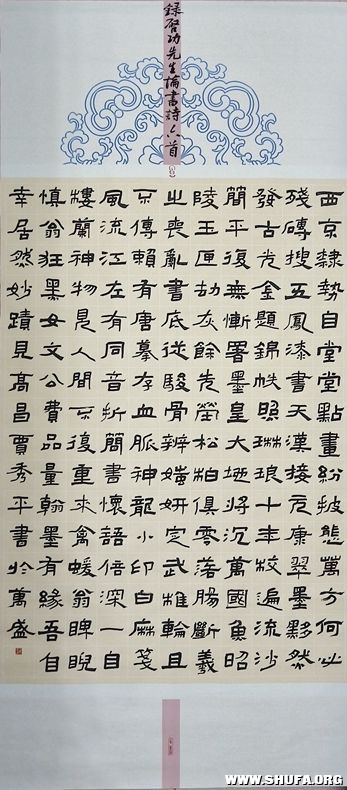 錄啓功先生論書詩六首
西京隸勢自堂堂點畫紛披態萬方何必
殘磚搜五鳳漆書天漢接元康翠墨黟然
發古光金題錦帙照琳琅十年校遍流沙
簡平復無慚署墨皇大地將沉萬國魚昭
陵玉匣劫灰餘先塋松柏俱零落腸斷羲
之喪亂書底從駿骨辨媸妍定武椎輪且
不傳賴有唐摹存血脈神龍小印白麻箋
風流江左有同音折簡書懷語倍深一自
樓蘭神物見人間不復重來禽蝯翁睥睨
慎翁狂黑女文公費品量翰墨有緣吾自
幸居然妙蹟見高昌賈秀平書於萬盛
WWW.SHUFA.ORG